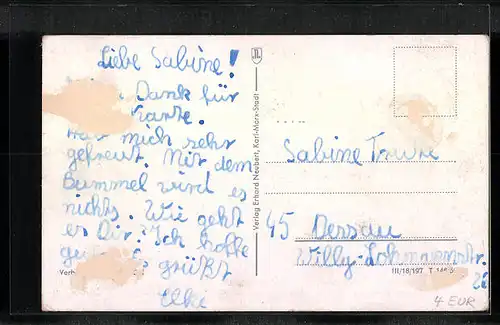 Liebe Sabine!
Dank für
Karte.
Hat mich sehr
gefreut. Mit dem
Bummel wird es
nichts. Wie geht
es Dir? Ich hoffe
grüßt
Elke
Verlag Erhard Neubert, Karl-Marx-Stadt
Sabine
45 Dessau
Willy-Lohmannstr.
III/18/197
4 EUR